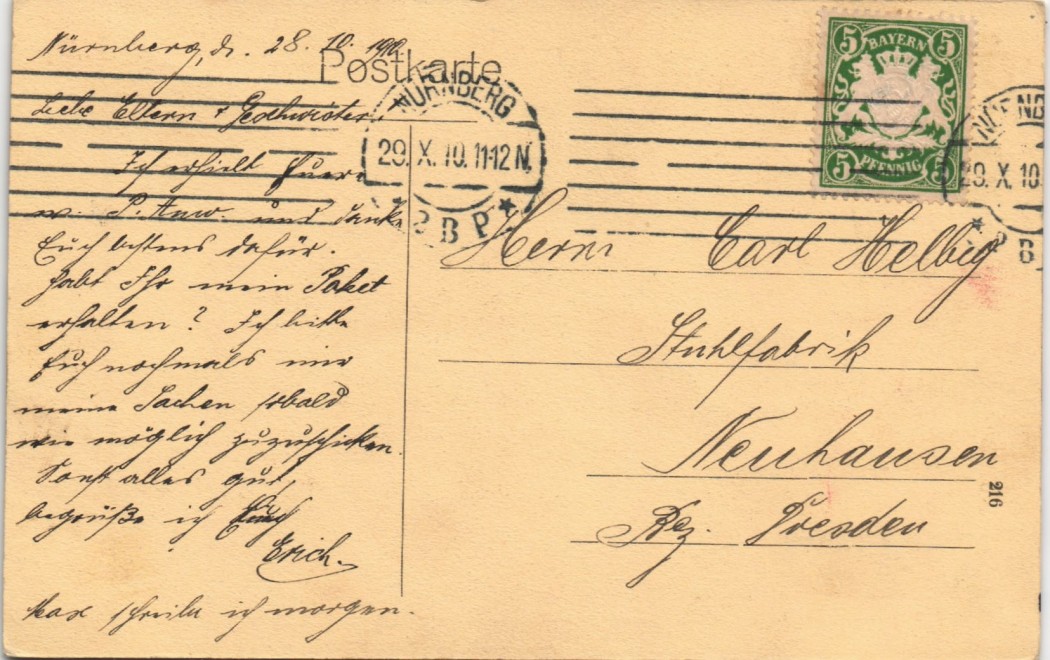 Nürnberg, d. 28. 10. 1910.
Postkarte
Liebe Eltern + Geschwister.
Ich erhielt Euere
w. P. Anw. und danke
Euch bestens dafür.
Habt Ihr mein Paket
erhalten? Ich bitte
Euch nochmals mir
meine Sachen sobald
wie möglich zuzuschicken.
Sonst alles gut,
begrüße ich Euch
Erich.
Max schreibe ich morgen.
NÜRNBERG
29. X. 10. 11-12 N.
2 B P.
5 BAYERN 5
5 PFENNIG 5
NÜRNB
29. X. 10.
B
Herrn Carl Helbig
Stuhlfabrik
Neuhausen
Bez. Dresden
216